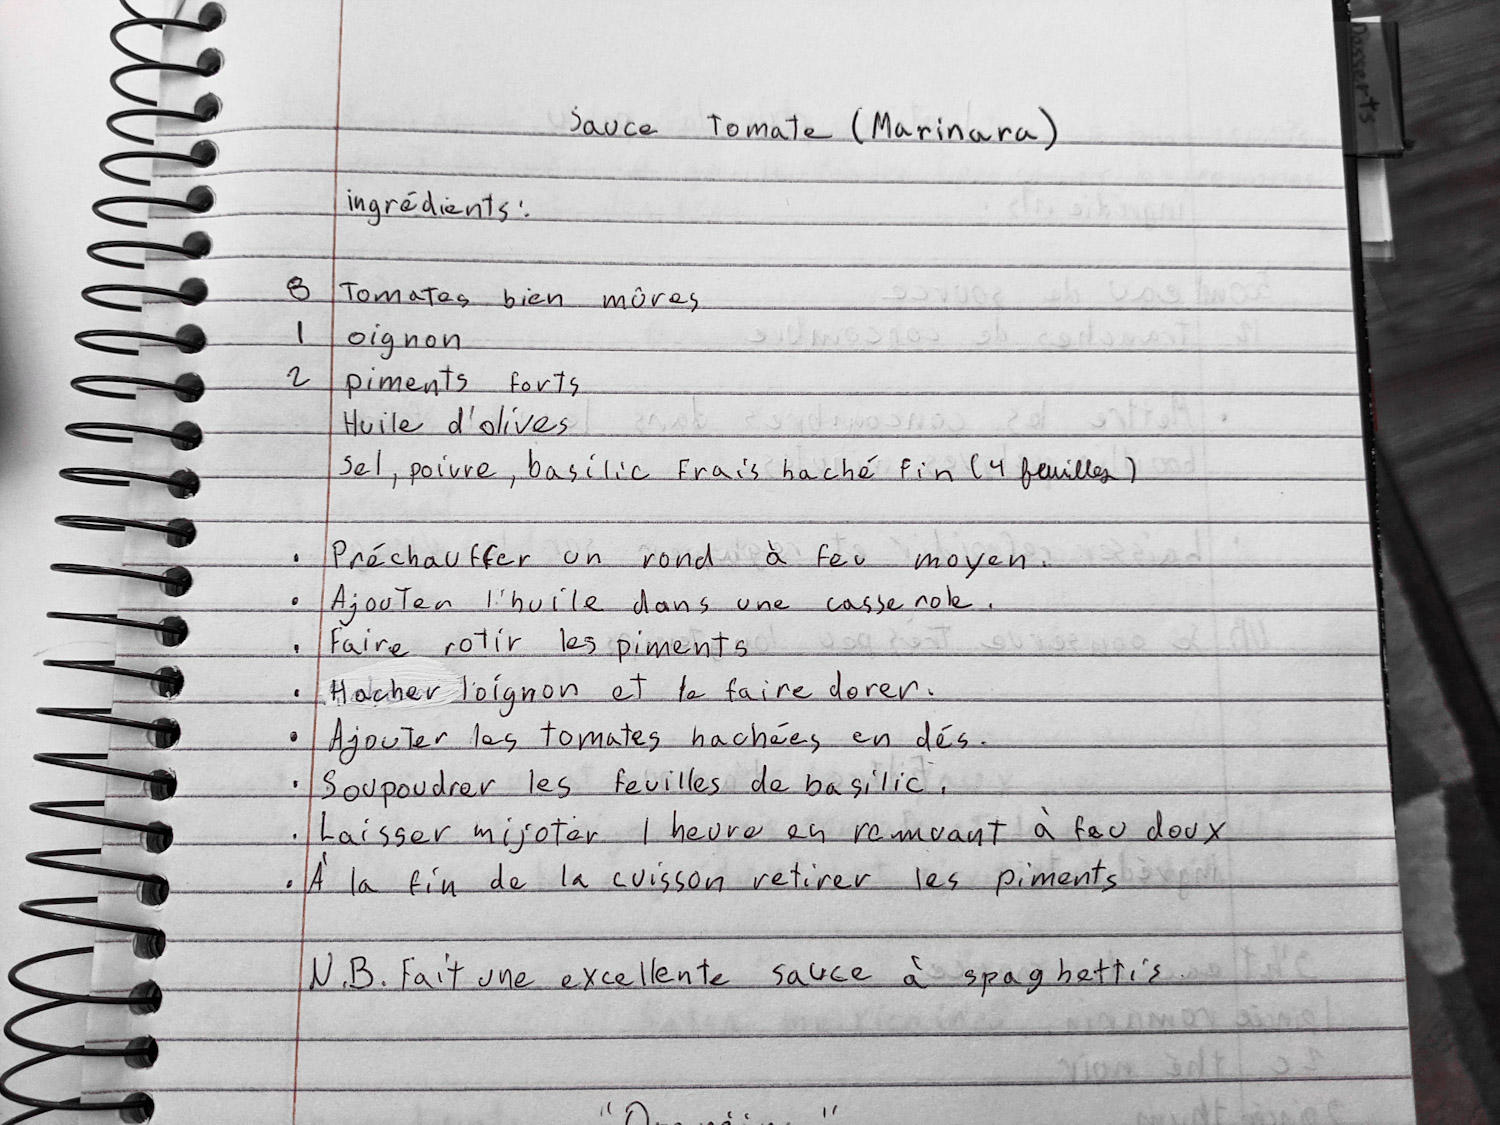 Desserts
Sauce Tomate (Marinara)
ingrédients:
8 Tomates bien mûres
1 oignon
2 piments forts
Huile d'olives
Sel, poivre, basilic frais haché fin (4 feuilles)
• Préchauffer un rond à feu moyen.
• Ajouter l'huile dans une casserole.
• Faire rotir les piments
• Hacher l'oignon et le faire dorer.
• Ajouter les tomates hachées en dés.
• Soupoudrer les feuilles de basilic.
• Laisser mijoter 1 heure en remuant à feu doux
• À la fin de la cuisson retirer les piments
N.B. Fait une excellente sauce à spaghettis.